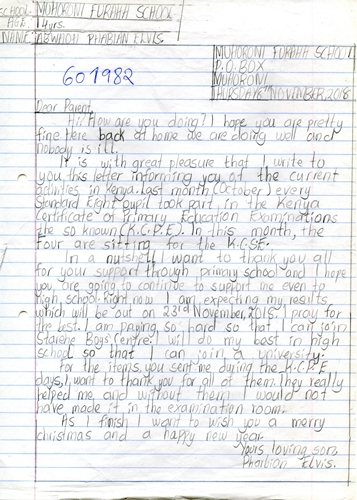 SCHOOL: MUHORONI FURAHA SCHOOL
AGE 14yrs.
NAME: ABWAO PHABIAN ELVIS.
MUHORONI FURAHA SCHOOL
P.O. BOX
MUHORONI
THURSDAY NOVEMBER, 2015
601982
Dear Parent,
Hi! How are you doing? I hope you are pretty
fine. Here back at home we are doing well and
nobody is ill.
It is with great pleasure that I write to
you this letter informing you of the current
activities in Kenya. Last month, (October) every
Standard Eight pupil took part in the Kenya
Certificate of Primary Education Examinations
the so known (K.C.P.E). In this month, the
Four are sitting for the K.C.S.E.
In a nutshell I want to thank you all
for your support through primary school and I hope
you are going to continue to support me even to
high school. Right now I am expecting my results
which will be out on 23rd November, 2015. I pray for
the best. I am praying so hard so that I can join
Starehe Boys Centre. I will do my best in high
school so that I can join a university.
For the items you sent me during the K.C.P.E
days, I want to thank you for all of them. They really
helped me and without them I would not
have made it in the examination room.
As I finish I want to wish you a merry
christmas and a happy new year.
Yours loving son,
Phabian Elvis.